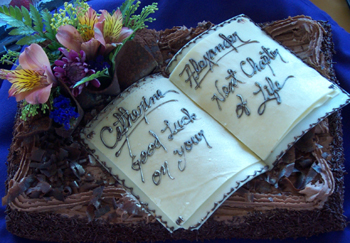 Catherine
Good Luck
on your
Alexander
Next Chapter
of Life